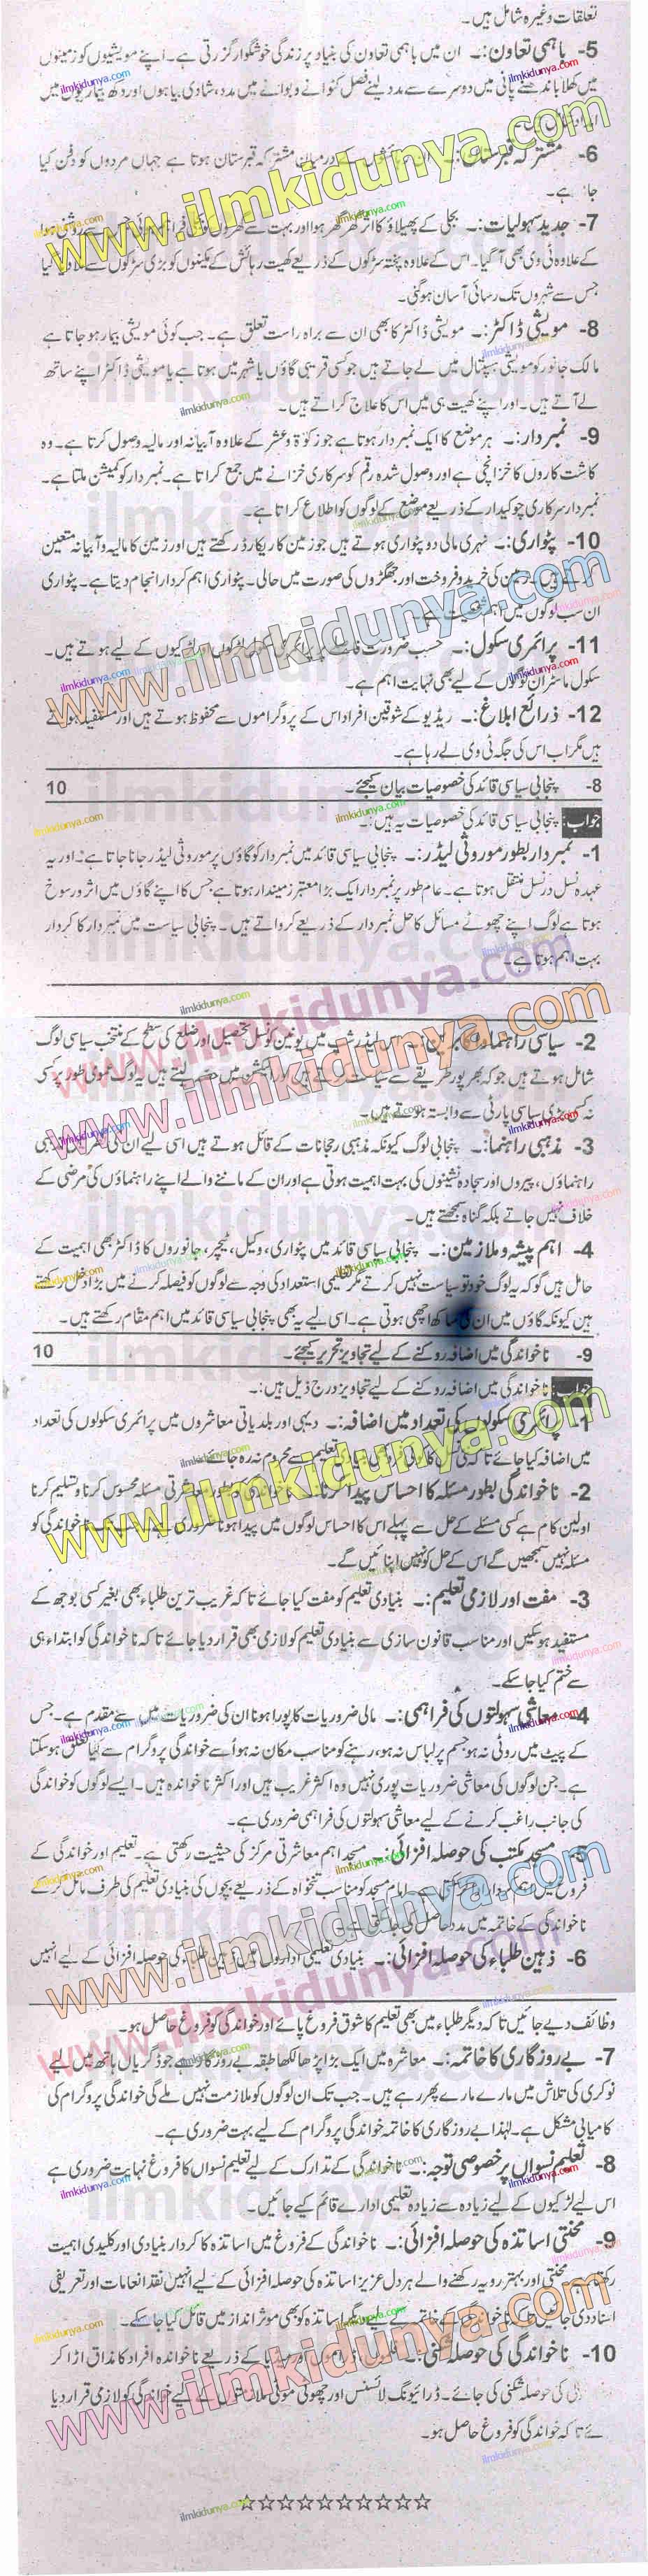 تعلقات وغیرہ شامل ہیں۔
5- باہمی تعاون:۔ ان میں باہمی تعاون کی بنیاد پر زندگی خوشگوار گزرتی ہے۔ اپنے مویشیوں کو زمینوں
میں کھلا باندھنے پانی میں دوسرے سے مدد لینے فصل کٹوانے و بوانے میں مدد، شادی بیاہوں اور دکھ بیماریوں میں
6- مشترکہ قبرستان:۔ ان کے درمیان مشترکہ قبرستان ہوتا ہے جہاں مردوں کو دفن کیا
جا ہے۔
7- جدید سہولیات:۔ بجلی کے پھیلاؤ کا اثر گھر گھر ہوا اور بہت سے گھروں کو بجلی
کے علاوہ ٹی وی بھی آ گیا۔ اس کے علاوہ پختہ سڑکوں کے ذریعے کھیت رہائش کے مکینوں کو بڑی سڑکوں سے ملا دیا گیا
جس سے شہروں تک رسائی آسان ہو گئی۔
8- مویشی ڈاکٹر:۔ مویشی ڈاکٹر کا بھی ان سے براہ راست تعلق ہے۔ جب کوئی مویشی بیمار ہو جاتا ہے
مالک جانور کو مویشی ہسپتال میں لے جاتے ہیں جو کسی قریبی گاؤں یا شہر میں ہوتا ہے یا مویشی ڈاکٹر اپنے ساتھ
لے آتے ہیں۔ اور اپنے کھیت ہی میں اس کا علاج کراتے ہیں۔
9- نمبردار:۔ ہر موضع کا ایک نمبردار ہوتا ہے جو زکوٰۃ و عشر کے علاوہ آبیانہ اور مالیہ وصول کرتا ہے۔ وہ
کاشت کاروں کا خزانچی ہے اور وصول شدہ رقم کو سرکاری خزانے میں جمع کراتا ہے۔ نمبردار کو کمیشن ملتا ہے۔
نمبردار سرکاری چوکیدار کے ذریعے موضع کے لوگوں کو اطلاع کراتا ہے۔
10- پٹواری:۔ نہری مالی دو پٹواری ہوتے ہیں جو زمین کا ریکارڈ رکھتے ہیں اور زمین کا مالیہ و آبیانہ متعین
کرتے ہیں۔ زمین کی خرید و فروخت اور جھگڑوں کی صورت میں حالی۔ پٹواری اہم کردار انجام دیتا ہے۔ پٹواری
ان سب لوگوں میں اہم شخصیت ہے۔
11- پرائمری سکول:۔ حسب ضرورت فاصلے پر پرائمری سکول لڑکوں اور لڑکیوں کے لیے ہوتے ہیں۔
سکول ماسٹر ان لوگوں کے لیے بھی نہایت اہم ہے۔
12- ذرائع ابلاغ:۔ ریڈیو کے شوقین افراد اس کے پروگراموں سے محفوظ ہوتے ہیں اور مستفید ہوتے
ہیں مگر اب اس کی جگہ ٹی وی لے رہا ہے۔
8- پنجابی سیاسی قائد کی خصوصیات بیان کیجئے۔ 10
جواب: پنجابی سیاسی قائد کی خصوصیات یہ ہیں:۔
1- نمبردار بطور موروثی لیڈر:۔ پنجابی سیاسی قائد میں نمبردار کو گاؤں پر موروثی لیڈر جانا جاتا ہے۔ اور یہ
عہدہ نسل در نسل منتقل ہوتا ہے۔ عام طور پر نمبردار ایک بڑا معتبر زمیندار ہوتا ہے جس کا اپنے گاؤں میں اثر و رسوخ
ہوتا ہے لوگ اپنے چھوٹے مسائل کا حل نمبردار کے ذریعے کرواتے ہیں۔ پنجابی سیاست میں نمبردار کا کردار
بہت اہم ہوتا ہے۔
2- سیاسی راہنما و اکابرین:۔ لیڈرشپ میں یونین کونسل تحصیل اور ضلع کی سطح کے منتخب سیاسی لوگ
شامل ہوتے ہیں جو کہ بھرپور طریقے سے سیاست کرتے ہیں اور الیکشن میں حصہ لیتے ہیں یہ لوگ عمومی طور پر کسی
نہ کسی بڑی سیاسی پارٹی سے وابستہ ہوتے ہیں۔
3- مذہبی راہنما:۔ پنجابی لوگ کیونکہ مذہبی رجحانات کے قائل ہوتے ہیں اسی لیے ان کی مذہبی
راہنماؤں، پیروں اور سجادہ نشینوں کی بہت اہمیت ہوتی ہے اور ان کے ماننے والے اپنے راہنماؤں کی مرضی کے
خلاف نہیں جاتے بلکہ گناہ سمجھتے ہیں۔
4- اہم پیشہ و ملازمین:۔ پنجابی سیاسی قائد میں پٹواری، وکیل، ٹیچر، جانوروں کا ڈاکٹر بھی اہمیت کے
حامل ہیں گو کہ یہ لوگ خود تو سیاست نہیں کرتے مگر تعلیمی استعداد کی وجہ سے لوگوں کو فیصلہ کرنے میں بڑا دخل رکھتے
ہیں کیونکہ گاؤں میں ان کی ساکھ اچھی ہوتی ہے۔ اسی لیے یہ بھی پنجابی سیاسی قائد میں اہم مقام رکھتے ہیں۔
9- ناخواندگی میں اضافہ روکنے کے لیے تجاویز تحریر کیجئے۔ 10
جواب: ناخواندگی میں اضافہ روکنے کے لیے تجاویز درج ذیل ہیں:۔
1- پرائمری سکولوں کی تعداد میں اضافہ:۔ دیہی اور بلدیاتی معاشروں میں پرائمری سکولوں کی تعداد
میں اضافہ کیا جائے تاکہ تعلیم سے محروم نہ رہ جائے۔
2- ناخواندگی بطور مسئلہ کا احساس پیدا کرنا:۔ ناخواندگی کو بطور معاشرتی مسئلہ محسوس کرنا و تسلیم کرنا
اولین کام ہے کسی مسئلے کے حل سے پہلے اس کا احساس لوگوں میں پیدا ہونا ضروری ہے۔ جب تک ناخواندگی کو
مسئلہ نہیں سمجھیں گے اس کے حل کو نہیں اپنائیں گے۔
3- مفت اور لازمی تعلیم:۔ بنیادی تعلیم کو مفت کیا جائے تاکہ غریب ترین طلباء بھی بغیر کسی بوجھ کے
مستفید ہو سکیں اور مناسب قانون سازی سے بنیادی تعلیم کو لازمی بھی قرار دیا جائے تاکہ ناخواندگی کو ابتداء ہی
سے ختم کیا جا سکے۔
4- معاشی سہولتوں کی فراہمی:۔ مالی ضروریات کا پورا ہونا ان کی ضروریات میں سے مقدم ہے۔ جس
کے پیٹ میں روٹی نہ ہو جسم پر لباس نہ ہو، رہنے کو مناسب مکان نہ ہو اسے خواندگی پروگرام سے کیا تعلق ہو سکتا
ہے۔ جن لوگوں کی معاشی ضروریات پوری نہیں وہ اکثر غریب ہیں اور اکثر ناخواندہ ہیں۔ ایسے لوگوں کو خواندگی
کی جانب راغب کرنے کے لیے معاشی سہولتوں کی فراہمی ضروری ہے۔
5- مسجد مکتب کی حوصلہ افزائی:۔ مسجد اہم معاشرتی مرکز کی حیثیت رکھتی ہے۔ تعلیم اور خواندگی کے
فروغ میں اہم کردار ادا کر سکتی ہے۔ امام مسجد کو مناسب تنخواہ کے ذریعے بچوں کی بنیادی تعلیم کی طرف مائل کر کے
ناخواندگی کے خاتمہ میں مدد حاصل کی جا سکتی ہے۔
6- ذہین طلباء کی حوصلہ افزائی:۔ بنیادی تعلیمی اداروں میں ذہین طلباء کی حوصلہ افزائی کے لیے انہیں
وظائف دیے جائیں تاکہ دیگر طلباء میں بھی تعلیم کا شوق فروغ پائے اور خواندگی کو فروغ حاصل ہو۔
7- بے روزگاری کا خاتمہ:۔ معاشرہ میں ایک بڑا پڑھا لکھا طبقہ بے روزگار ہے جو ڈگریاں ہاتھ میں لیے
نوکری کی تلاش میں مارے مارے پھر رہے ہیں۔ جب تک ان لوگوں کو ملازمت نہیں ملے گی خواندگی پروگرام کی
کامیابی مشکل ہے۔ لہٰذا بے روزگاری کا خاتمہ خواندگی پروگرام کے لیے بہت ضروری ہے۔
8- تعلیم نسواں پر خصوصی توجہ:۔ ناخواندگی کے تدارک کے لیے تعلیم نسواں کا فروغ نہایت ضروری ہے
اس لیے لڑکیوں کے لیے زیادہ سے زیادہ تعلیمی ادارے قائم کیے جائیں۔
9- محنتی اساتذہ کی حوصلہ افزائی:۔ ناخواندگی کے فروغ میں اساتذہ کا کردار بنیادی اور کلیدی اہمیت
رکھتا ہے۔ محنتی اور بہتر رویہ رکھنے والے ہر دل عزیز اساتذہ کی حوصلہ افزائی کے لیے انہیں نقد انعامات اور تعریفی
اسناد دی جائیں تاکہ ناخواندگی کے خاتمے کے لیے دیگر اساتذہ کو بھی موثر انداز میں قائل کیا جا سکے۔
10- ناخواندگی کی حوصلہ شکنی:۔ فلموں، ڈراموں اور میڈیا کے ذریعے ناخواندہ افراد کا مذاق اڑا کر
کی حوصلہ شکنی کی جائے۔ ڈرائیونگ لائسنس اور چھوٹی موٹی ملازمتوں کے لیے خواندگی کو لازمی قرار دیا
ئے تاکہ خواندگی کو فروغ حاصل ہو۔
☆☆☆☆☆☆☆☆☆☆
www.ilmkidunya.com
ilmkidunya.com